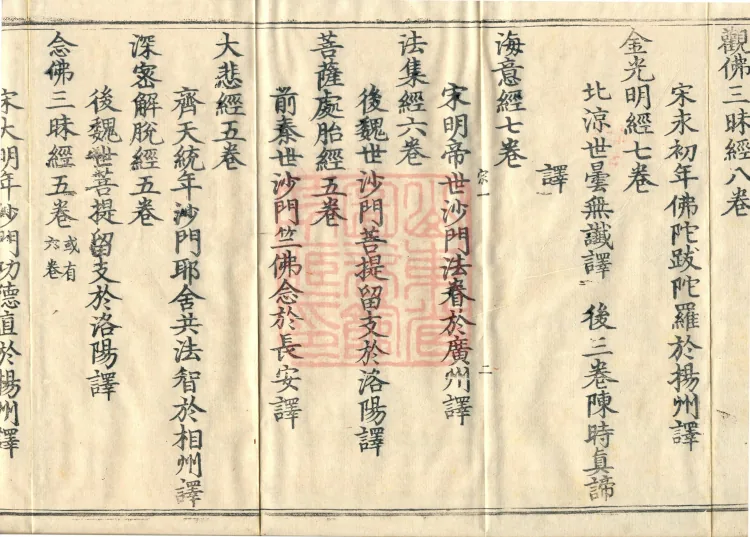 觀佛三昧經八卷
宋永初年佛陀跋陀羅於揚州譯
金光明經七卷
北涼世曇無讖譯　後三卷陳時真諦
譯
海意經七卷
宋明帝世沙門法眷於廣州譯
法集經六卷
後魏世沙門菩提留支於洛陽譯
菩薩處胎經五卷
前秦世沙門竺佛念於長安譯
大悲經五卷
齊天統年沙門耶舍共法智於相州譯
深密解脫經五卷
後魏世菩提留支於洛陽譯
念佛三昧經五卷 或有六卷
宋大明年沙門功德直於揚州譯